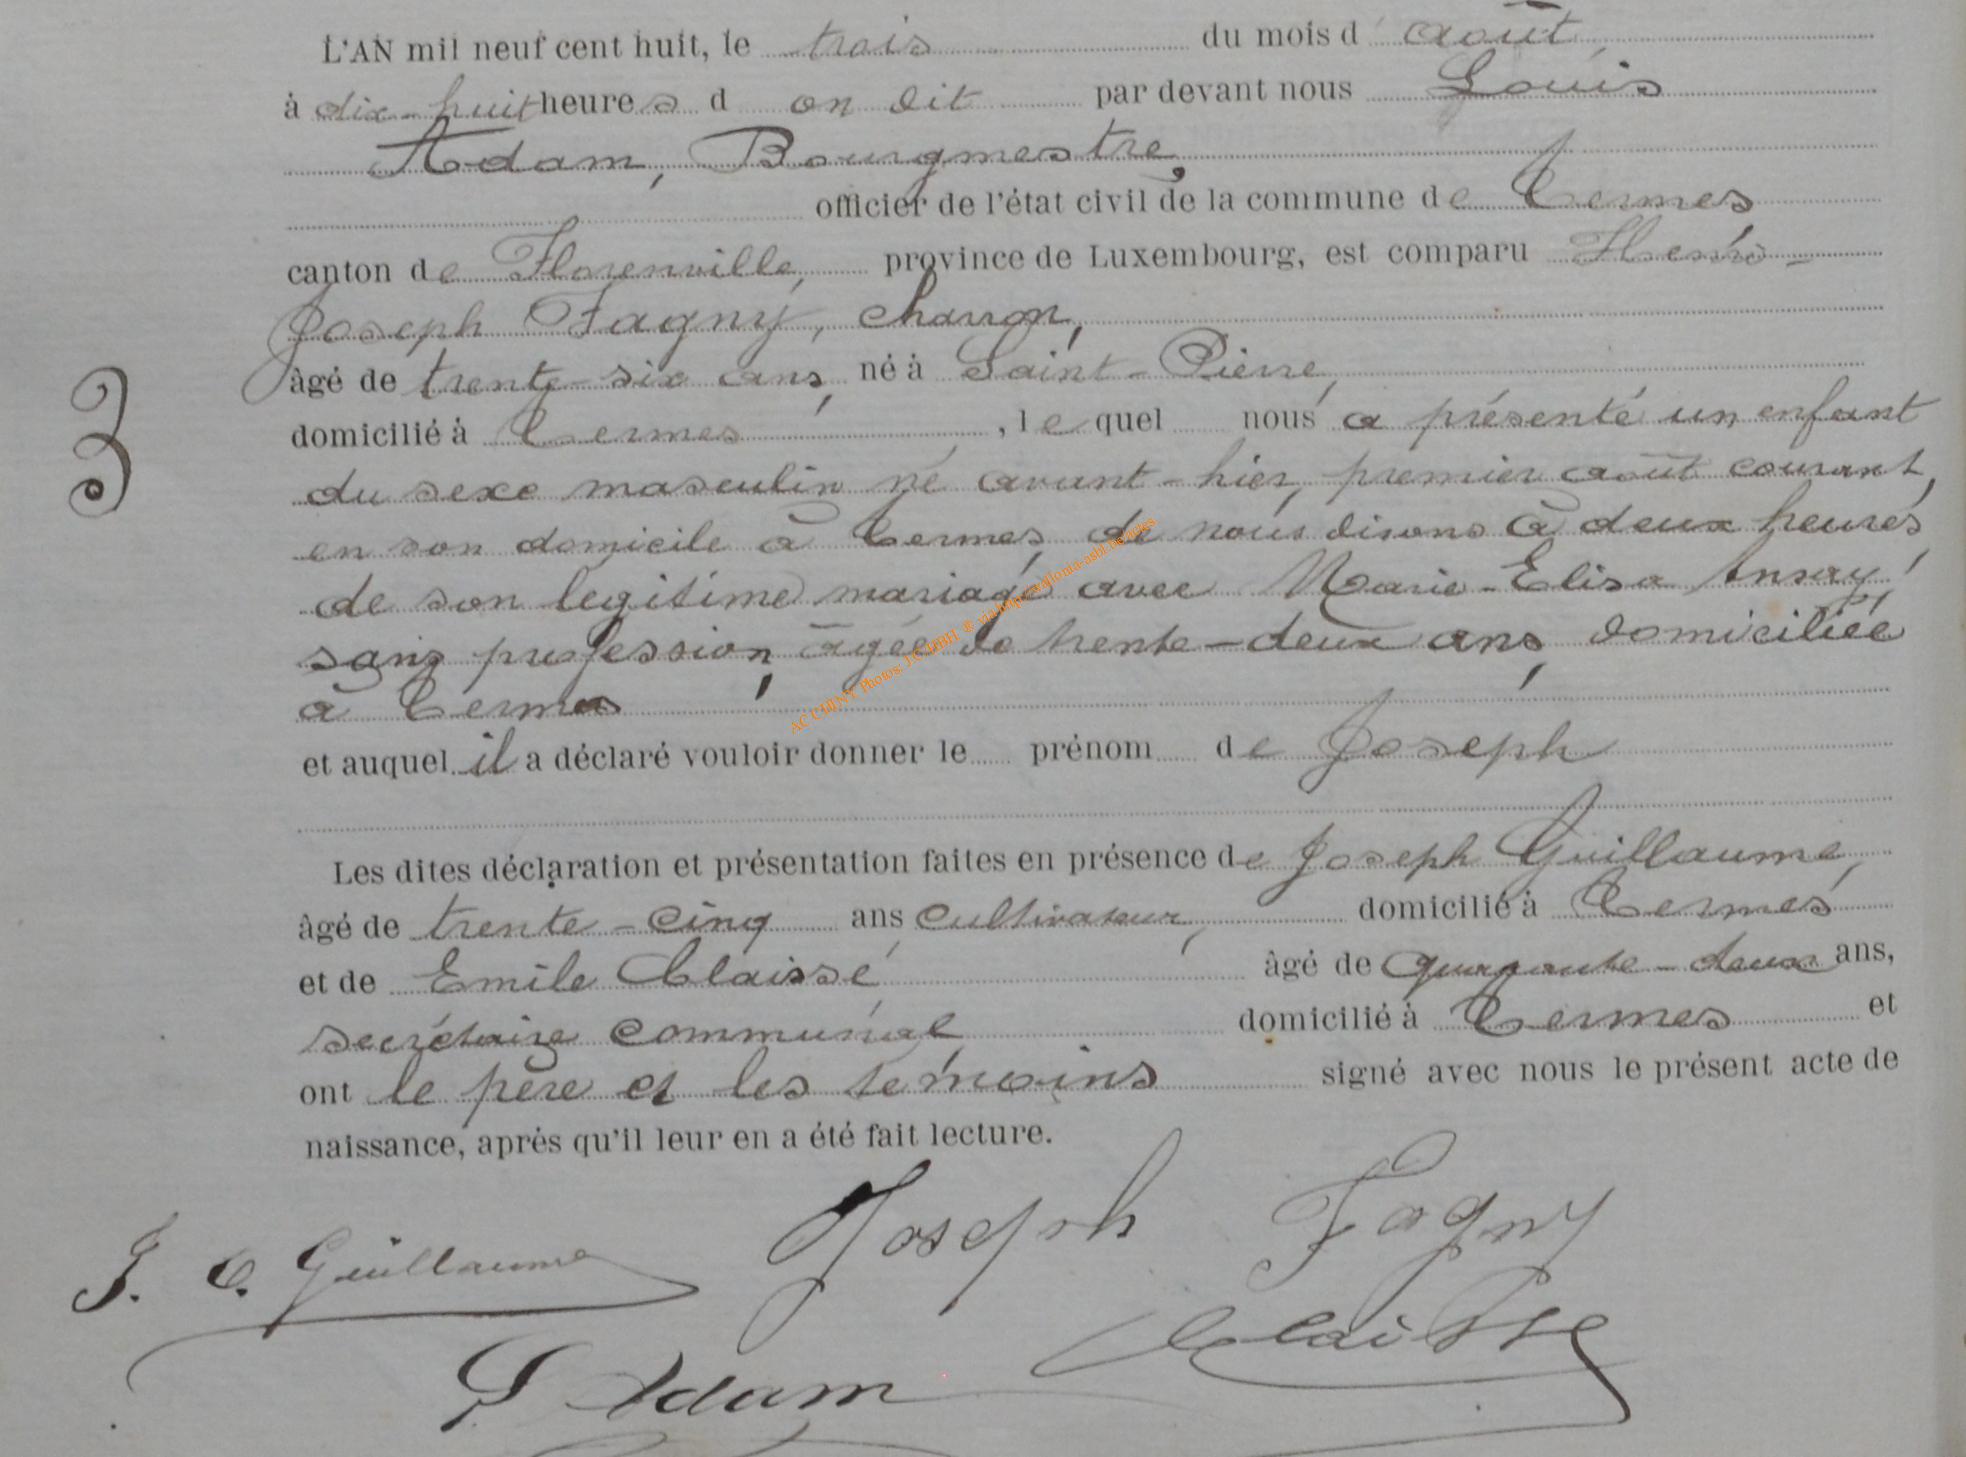 L'AN mil neuf cent huit, le trois du mois d' août
à dix-huit heures d on dit par devant nous Louis
Adam, Bourgmestre,
officier de l'état civil de la commune de Termes
canton de Florenville, province de Luxembourg, est comparu Henri-
Joseph Fagny, charron,
âgé de trente-six ans, né à Saint-Pierre,
domicilié à Termes, lequel nous a présenté un enfant
du sexe masculin né avant-hier, premier août courant,
en son domicile à Termes, de nous disons à deux heures
de son légitime mariage avec Marie-Elisa Ansay,
sans profession, âgée de trente-deux ans, domiciliée
à Termes
et auquel il a déclaré vouloir donner le prénom de Joseph
Les dites déclaration et présentation faites en présence de Joseph Guillaume,
âgé de trente-cinq ans cultivateur, domicilié à Termes
et de Emile Claisse, âgé de quarante-deux ans,
secrétaire communal domicilié à Termes et
ont le père et les témoins signé avec nous le présent acte de
naissance, après qu'il leur en a été fait lecture.
3
J. C. Guillaume Joseph Fagny
L Adam Claisse